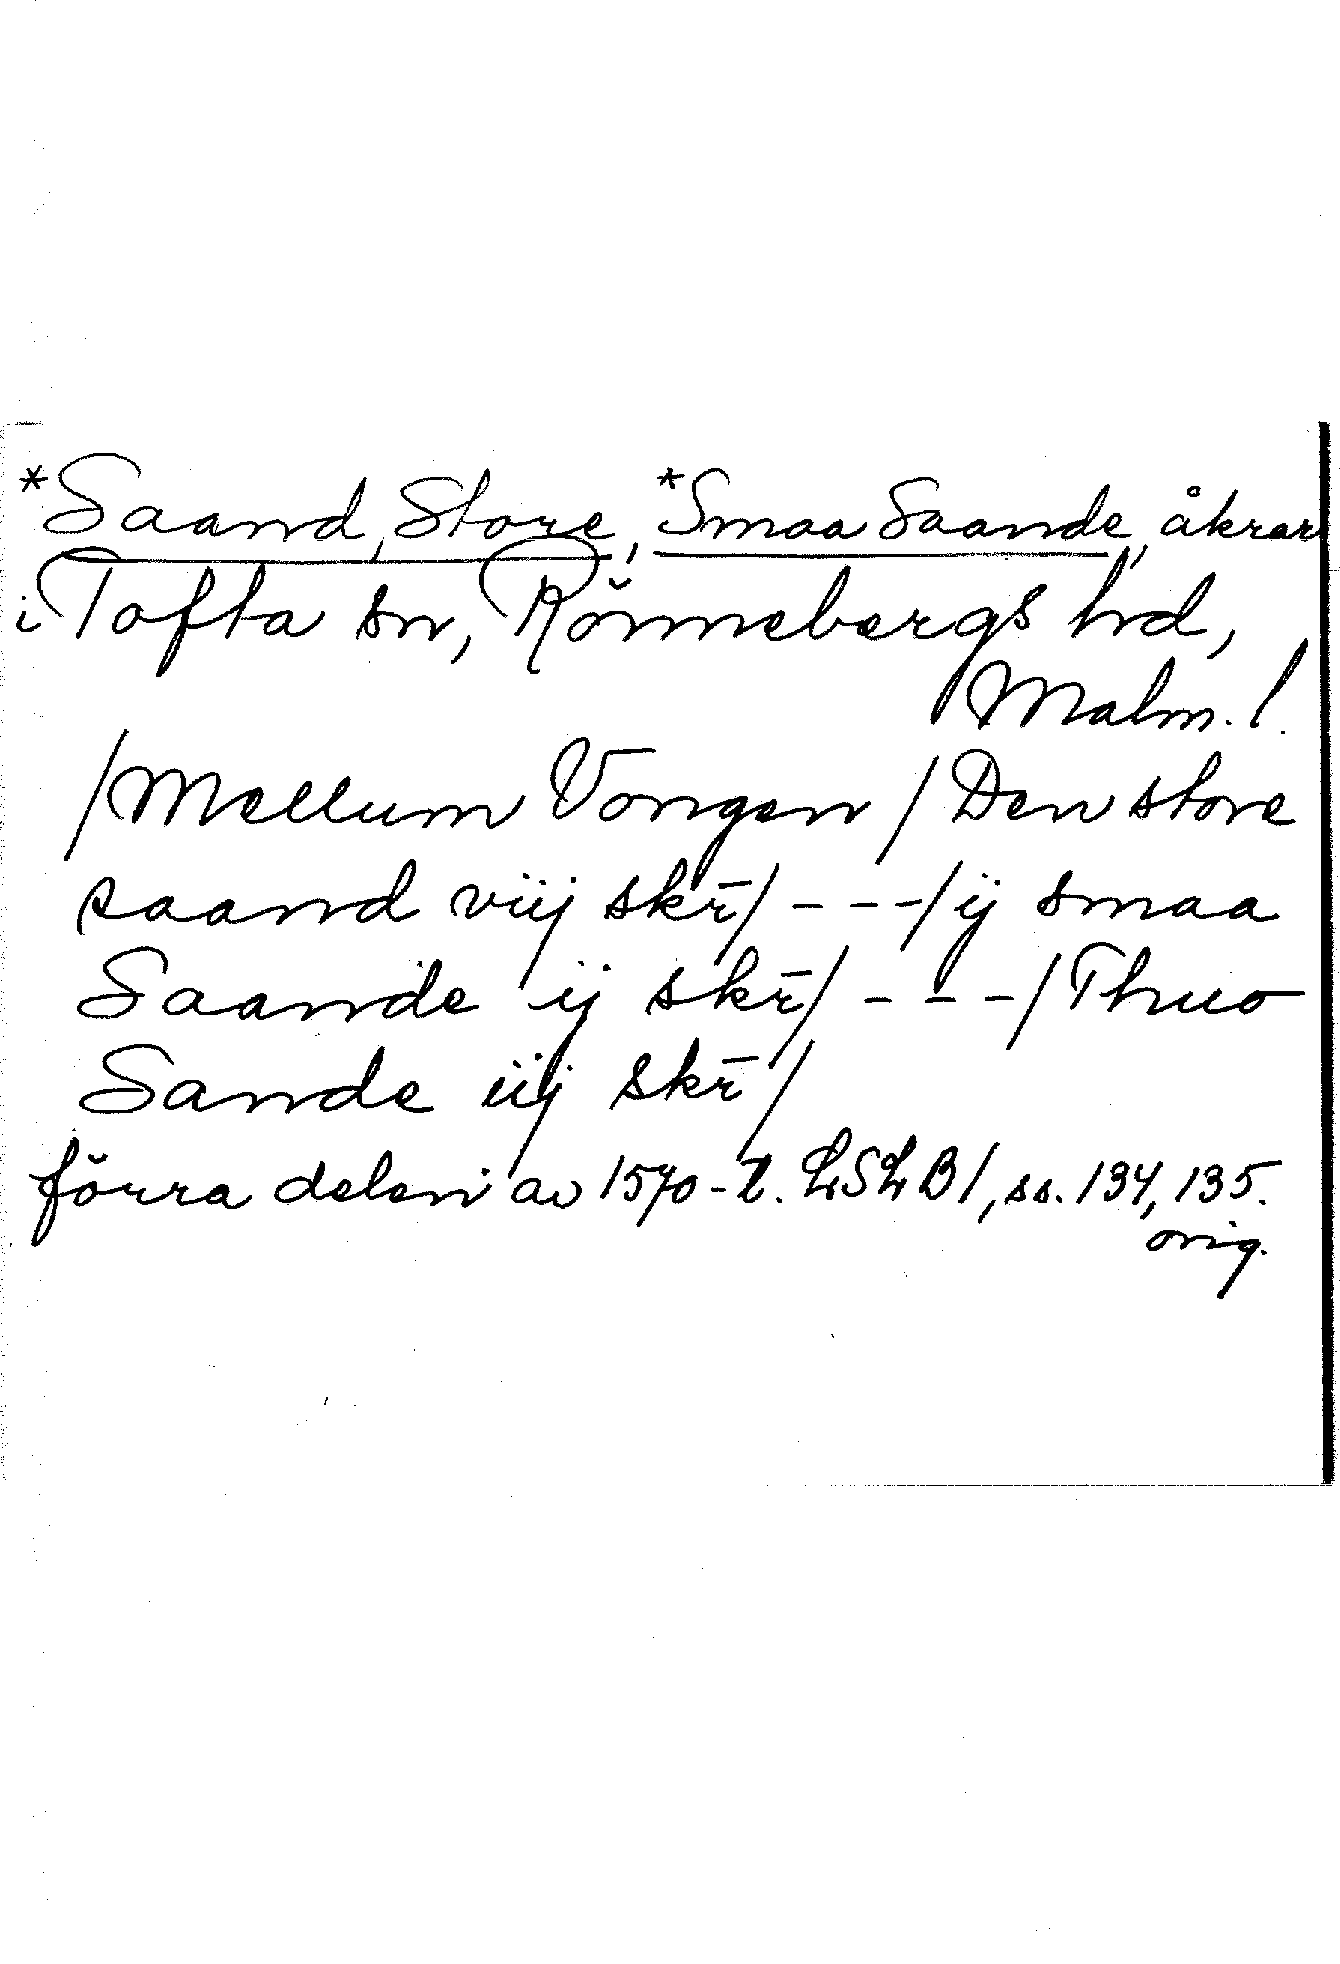 *Saand, Store, *Smaa Saande, åkrar
i Tofta sn, Rönnebergs hd,
Malm. l.
/Mellum Vongen / Den store
saand viij skr̄/ - - -/ ij smaa
Saande ij skr̄/ - - -/ Thuo
Sande iij skr̄/
förra delen av 1570-t. LSLB 1, ss. 134, 135.
orig.